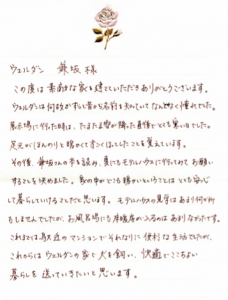 ウェルダン 兼坂 様
この度は素敵な家を建てていただきありがとうございます。
ウェルダンは何故かずいぶん昔から名前を知っていてなんとなく憧れでした。
展示場に行った時は、たまたま雪が降った直後でとても寒い日でした。
足元がほんのりと暖かくてホッとしたことを覚えています。
その後、兼坂さんの本を読み、夏にもモデルハウスに行ってみてお願い
することを決めました。家の中がどこも暖かいということはとても安心
して暮らしていけることだと思います。モデルハウスの見学はあまり何か所
もしませんでしたが、お風呂場にも床暖房が入るのはあまりなかったです。
これまでは駅近のマンションでそれなりに便利な生活でしたが、
これからはウェルダンの家で犬を飼い、快適でここちよい
暮らしを送っていきたいと思います。